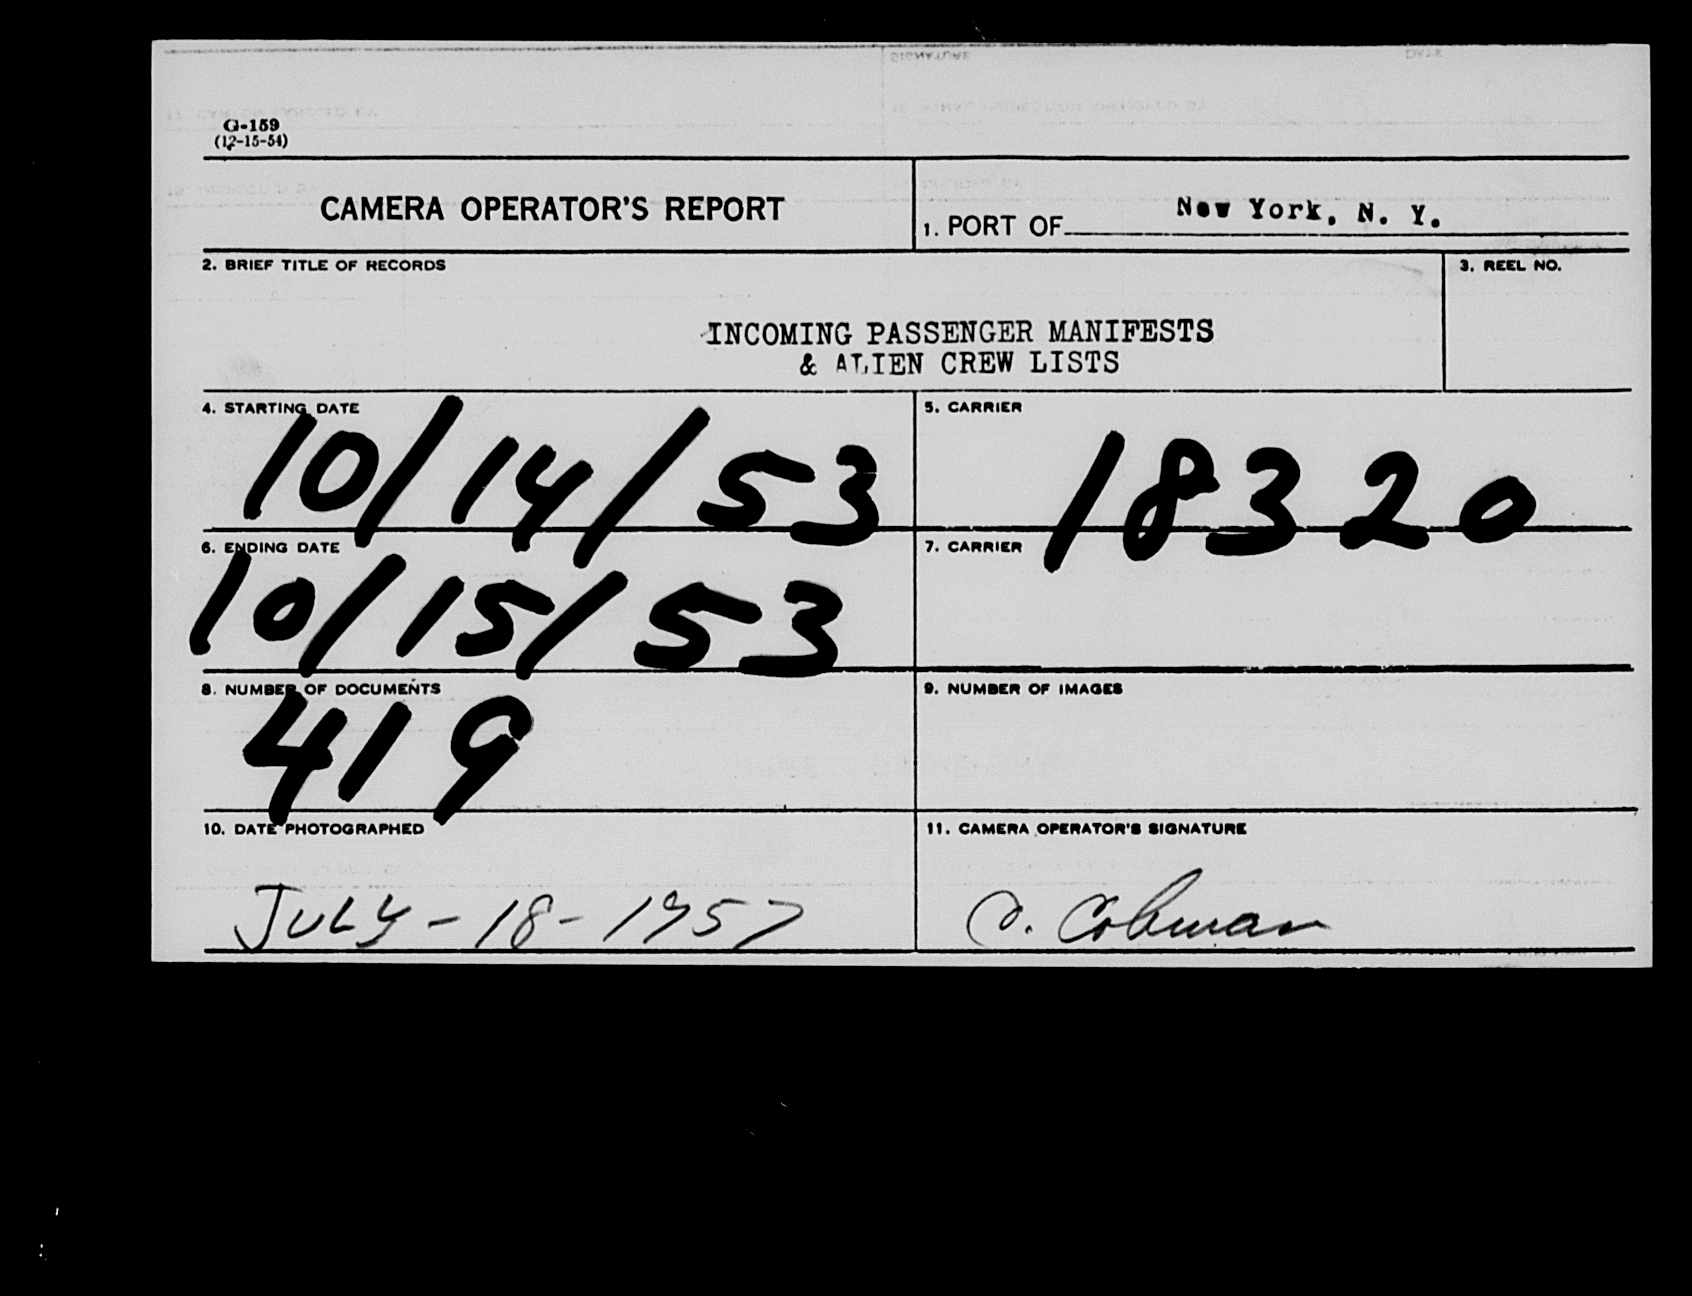 G-159
(12-15-54)
CAMERA OPERATOR'S REPORT
1. PORT OF New York, N. Y.
2. BRIEF TITLE OF RECORDS
3. REEL NO.
INCOMING PASSENGER MANIFESTS
& ALIEN CREW LISTS
4. STARTING DATE
10/14/53
5. CARRIER
18320
6. ENDING DATE
10/15/53
7. CARRIER
8. NUMBER OF DOCUMENTS
419
9. NUMBER OF IMAGES
10. DATE PHOTOGRAPHED
JULY-18-1957
11. CAMERA OPERATOR'S SIGNATURE